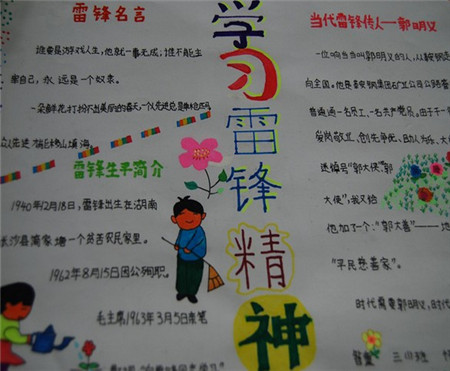 雷锋名言
谁要是游戏人生,他就一事无成;谁不能主
宰自己,永远是一个奴隶。
一朵鲜花打扮不出美丽的春天,一个人先进总是单枪匹马
众人先进才能移山填海。
雷锋生平简介
1940年12月18日,雷锋出生在湖南
长沙县简家塘一个贫苦农民家里。
1962年8月15日因公殉职。
毛主席1963年3月5日亲笔
学习雷锋精神
当代雷锋传人——郭明义
一位响当当叫郭明义的人,从鞍钢走
向全国。他是鞍钢集团矿业公司公路
普通通一名员工,一名共产党员。由于一
爱岗敬业,创先争优、助人为乐,大
送绰号“郭大侠”,郭
大侠”,我又给
他加了个:“郭大善”——地
“平民慈善家”。
时代需要郭明义,时代
三(1)班